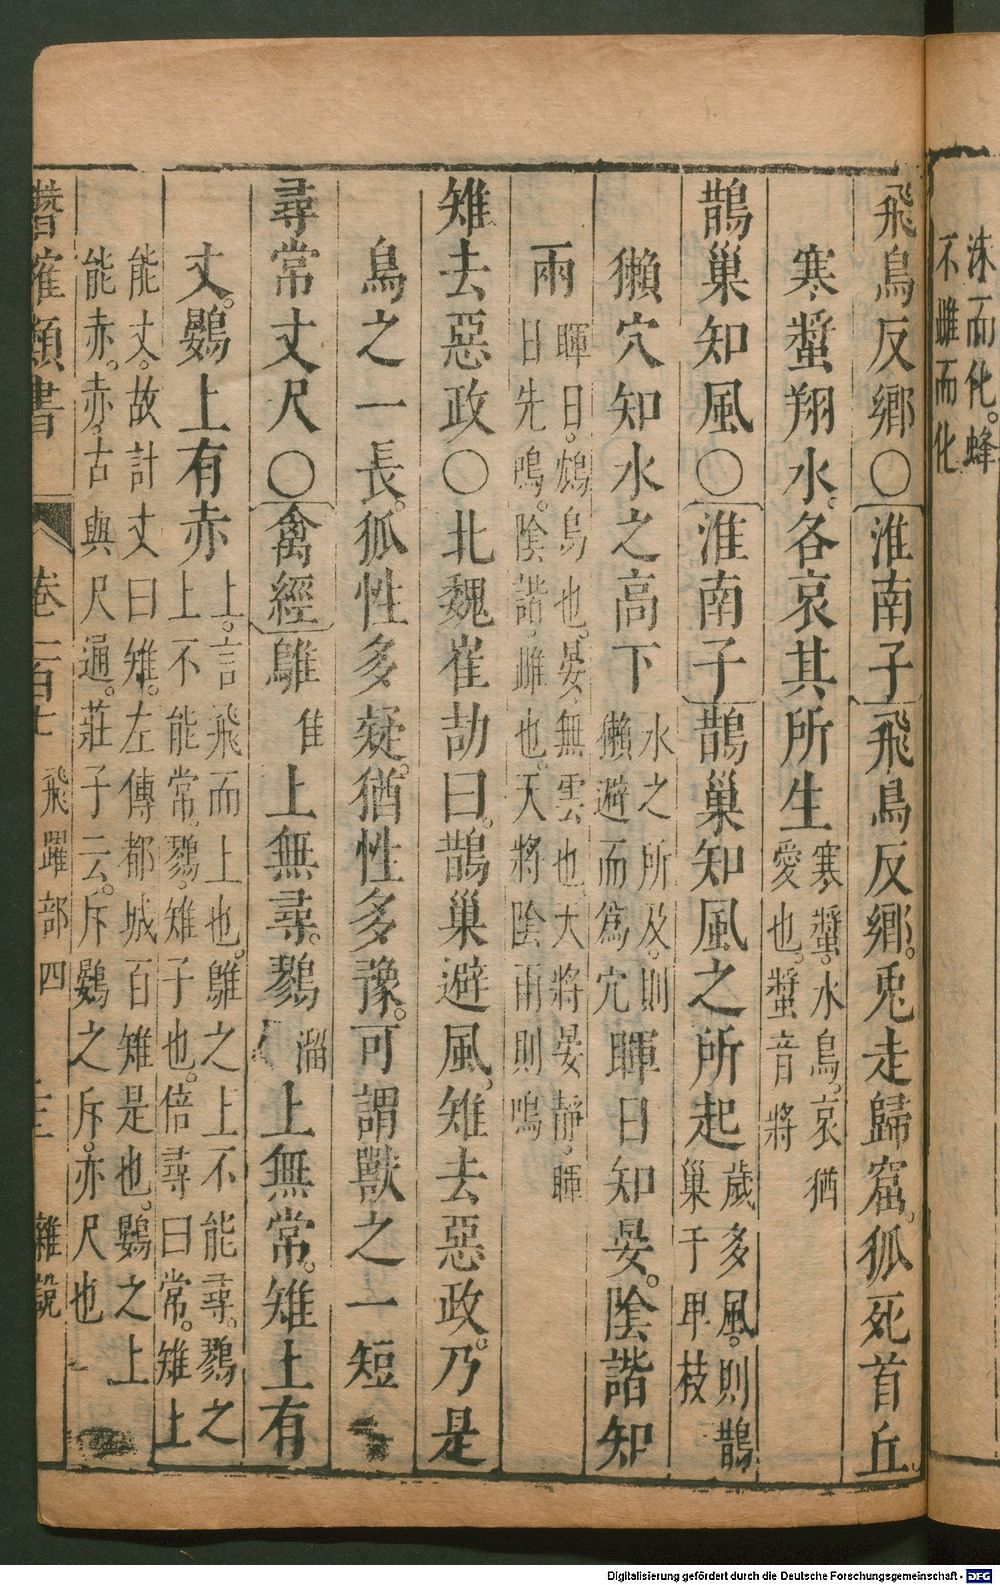 洙而化。蜂
不雌而化
飛鳥反鄉○淮南子飛鳥反鄉。兎走歸窟。狐死首丘
寒螿翔水。各哀其所生寒螿。水鳥。哀猶愛也。螿音將
鵲巢知風○淮南子鵲巢知風之所起歲多風。則鵲巢于甲枝
獺穴知水之高下水之所及。則獺避而爲穴暉日知晏。陰諧知
雨暉日。鴆鳥也。晏。無雲也。大將晏靜。暉日先鳴。陰諧。雌也。天將陰雨則鳴
雉去惡政○北魏崔劼曰。鵲巢避風。雉去惡政。乃是
鳥之一長。狐性多疑。猶性多豫。可謂獸之一短
尋常丈尺○禽經鵻隹上無尋。鷚溜上無常。雉上有
丈。鷃上有赤上。言飛而上也。鵻之上不能尋。鷚之上不能常。鷚。雉子也。倍尋曰常。雉上
能丈。故計丈曰雉。左傳都城百雉是也。鷃之上能赤。赤。古與尺通。莊子云。斥鷃之斥。亦尺也
潛確類書 卷一百七 飛躍部四 三 雜說
Digitalisierung gefördert durch die Deutsche Forschungsgemeinschaft - DFG